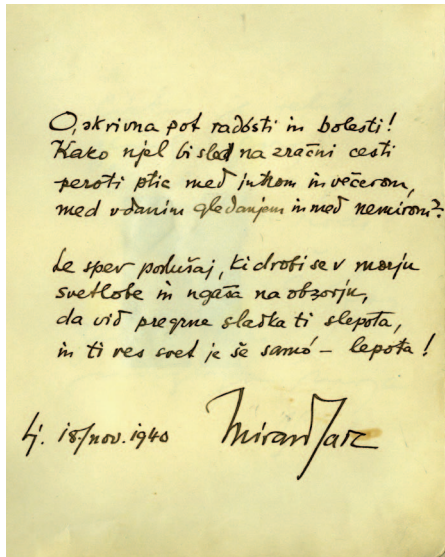 O, skrivna pot radósti in bolesti!
Kako njel bi sled na zračni cesti
peroti ptic med jutrom in večerom,
med vdanim gledanjem in med nemirom?
Le spev poslušaj, ki drobi se v morju
svetlobe in ugaša na obzorju,
da vid pregrne sladka ti slepota,
in ti ves svet je še samó – lepota!
Lj. 18./nov. 1940 Miran Jarc